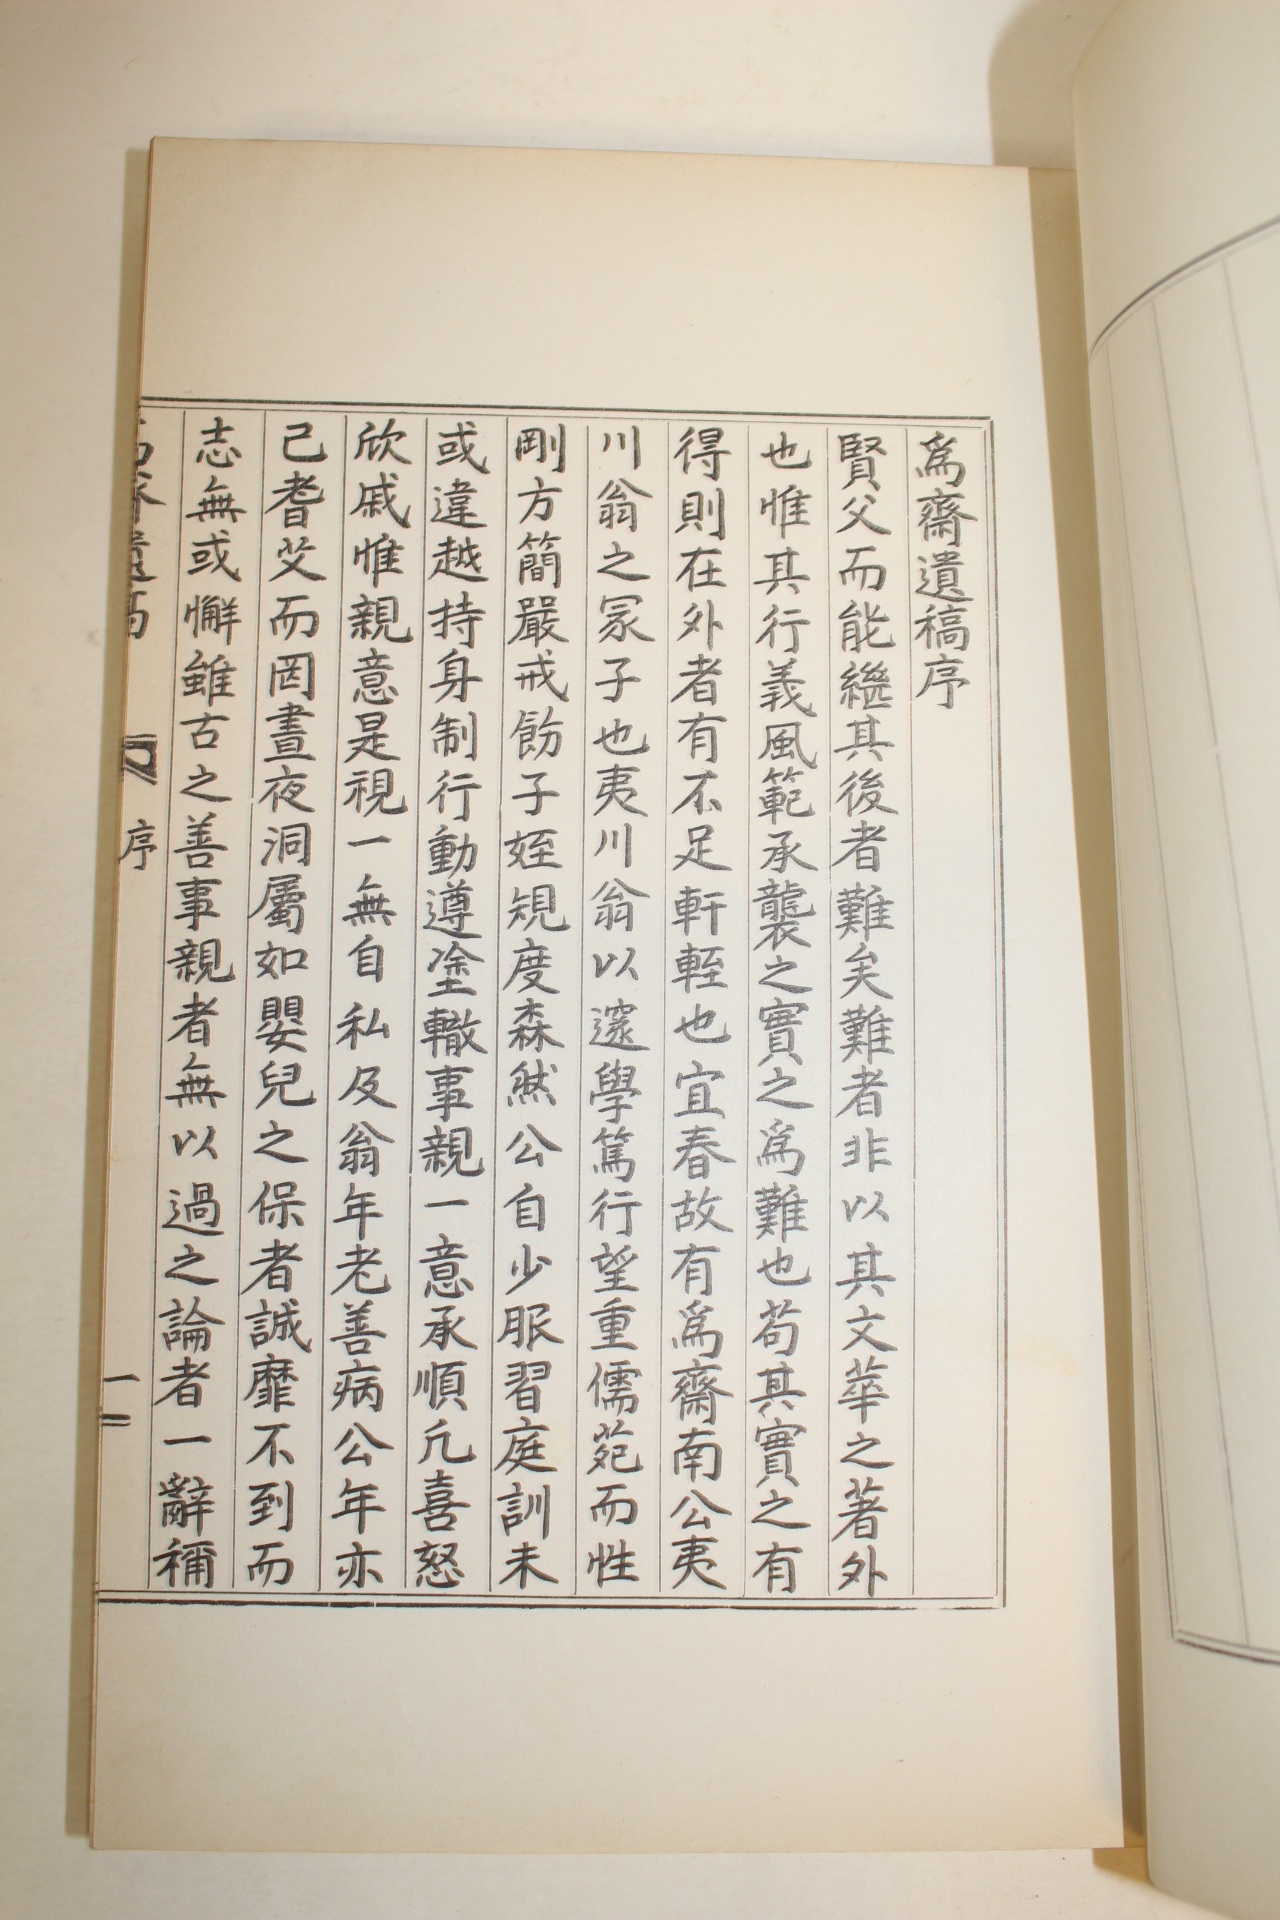 爲齋遺稿序
賢父而能繼其後者難矣難者非以其文華之著外
也惟其行義風範承襲之實之爲難也苟其實之有
得則在外者有不足軒輊也宜春故有爲齋南公夷
川翁之冢子也夷川翁以邃學篤行望重儒苑而性
剛方簡嚴戒飭子姪䂓度森然公自少服習庭訓未
或違越持身制行動遵塗轍事親一意承順凡喜怒
欣戚惟親意是視一無自私及翁年老善病公年亦
己耆艾而罔晝夜洞屬如嬰兒之保者誠靡不到而
志無或懈雖古之善事親者無以過之論者一辭稱
序
一